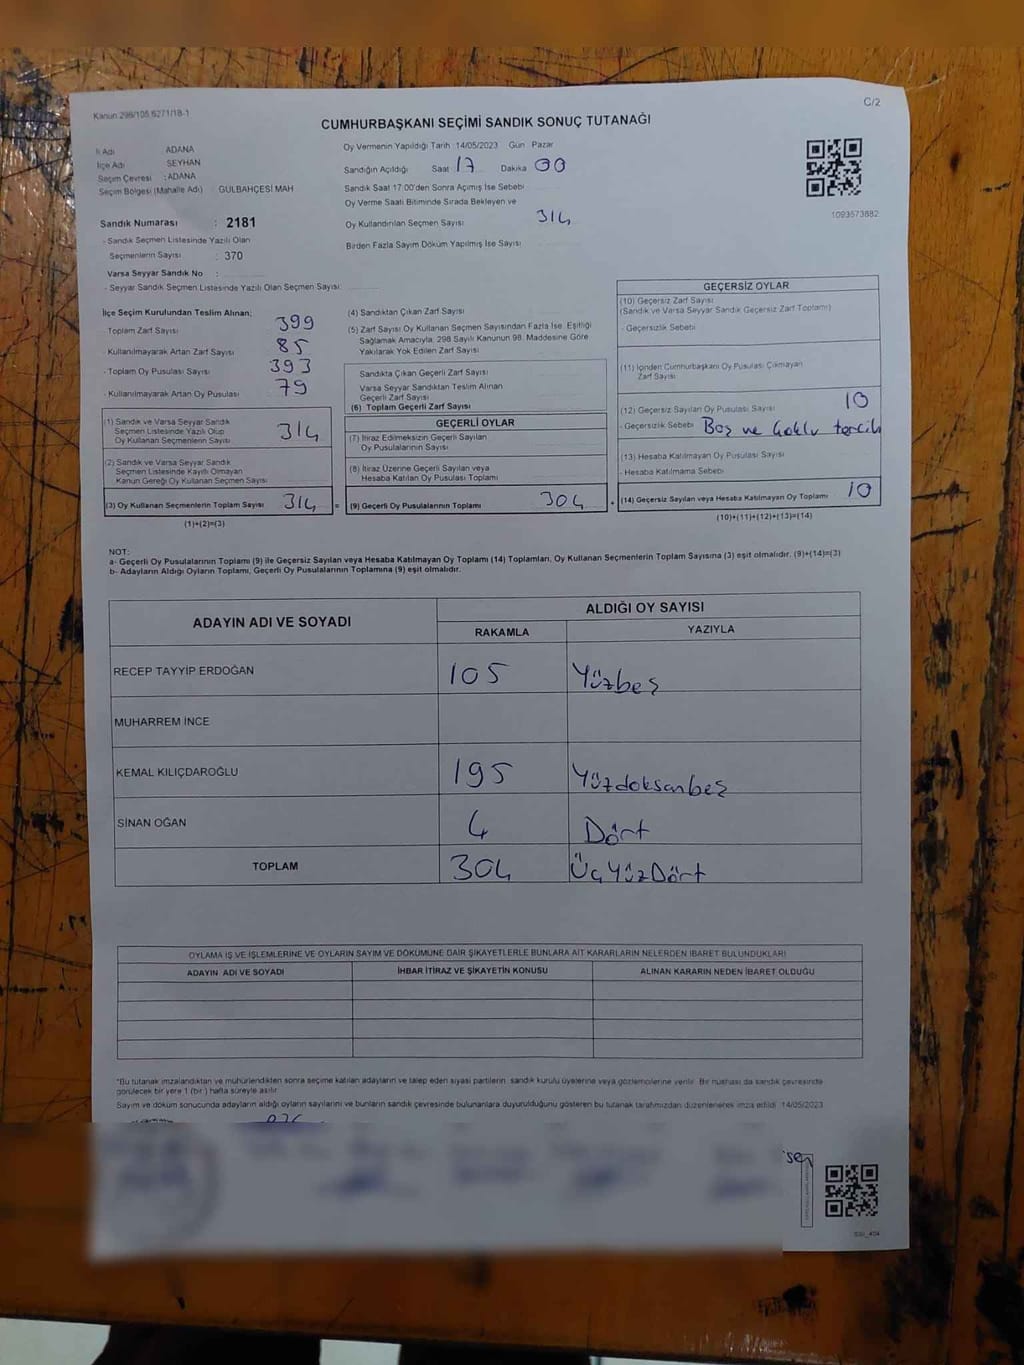 Kanun 298/105,6271/18-1
C/2
CUMHURBAŞKANI SEÇİMİ SANDIK SONUÇ TUTANAĞI
İl Adı ADANA
İlçe Adı SEYHAN
Seçim Çevresi : ADANA
Seçim Bölgesi (Mahalle Adı) : GÜLBAHÇESİ MAH
Sandık Numarası : 2181
- Sandık Seçmen Listesinde Yazılı Olan
Seçmenlerin Sayısı : 370
Varsa Seyyar Sandık No :
- Seyyar Sandık Seçmen Listesinde Yazılı Olan Seçmen Sayısı:
Oy Vermenin Yapıldığı Tarih 14/05/2023 Gün Pazar
Sandığın Açıldığı Saat 17 Dakika 00
Sandık Saat 17:00'den Sonra Açımış İse Sebebi
Oy Verme Saati Bitiminde Sırada Bekleyen ve
Oy Kullandırılan Seçmen Sayısı 314
Birden Fazla Sayım Döküm Yapılmış İse Sayısı
1093573882
İlçe Seçim Kurulundan Teslim Alınan;
- Toplam Zarf Sayısı 399
- Kullanılmayarak Artan Zarf Sayısı 85
- Toplam Oy Pusulası Sayısı 393
- Kullanılmayarak Artan Oy Pusulası 79
(1) Sandık ve Varsa Seyyar Sandık
Seçmen Listesinde Yazılı Olup
Oy Kullanan Seçmenlerin Sayısı 314
(2) Sandık ve Varsa Seyyar Sandık
Seçmen Listesinde Kayıtlı Olmayan
Kanun Gereği Oy Kullanan Seçmen Sayısı
(3) Oy Kullanan Seçmenlerin Toplam Sayısı 314 =
(1)+(2)=(3)
(4) Sandıktan Çıkan Zarf Sayısı
(5) Zarf Sayısı Oy Kullanan Seçmen Sayısından Fazla İse, Eşitliği
Sağlamak Amacıyla, 298 Sayılı Kanunun 98. Maddesine Göre
Yakılarak Yok Edilen Zarf Sayısı
Sandıkta Çıkan Geçerli Zarf Sayısı
Varsa Seyyar Sandıktan Teslim Alınan
Geçerli Zarf Sayısı
(6) Toplam Geçerli Zarf Sayısı
GEÇERLİ OYLAR
(7) İtiraz Edilmeksizin Geçerli Sayılan
Oy Pusulalarının Sayısı
(8) İtiraz Üzerine Geçerli Sayılan veya
Hesaba Katılan Oy Pusulası Toplamı
(9) Geçerli Oy Pusulalarının Toplamı 304 +
GEÇERSİZ OYLAR
(10) Geçersiz Zarf Sayısı
(Sandık ve Varsa Seyyar Sandık Geçersiz Zarf Toplamı)
- Geçersizlik Sebebi
(11) İçinden Cumhurbaşkanı Oy Pusulası Çıkmayan
Zarf Sayısı
(12) Geçersiz Sayılan Oy Pusulası Sayısı 10
- Geçersizlik Sebebi Boş ve Çoklu tercih
(13) Hesaba Katılmayan Oy Pusulası Sayısı
- Hesaba Katılmama Sebebi
(14) Geçersiz Sayılan veya Hesaba Katılmayan Oy Toplamı 10
(10)+(11)+(12)+(13)=(14)
NOT:
a- Geçerli Oy Pusulalarının Toplamı (9) ile Geçersiz Sayılan veya Hesaba Katılmayan Oy Toplamı (14) Toplamları, Oy Kullanan Seçmenlerin Toplam Sayısına (3) eşit olmalıdır. (9)+(14)=(3)
b- Adayların Aldığı Oyların Toplamı, Geçerli Oy Pusulalarının Toplamına (9) eşit olmalıdır.
ADAYIN ADI VE SOYADI ALDIĞI OY SAYISI
RAKAMLA YAZIYLA
RECEP TAYYİP ERDOĞAN 105 Yüzbeş
MUHARREM İNCE
KEMAL KILIÇDAROĞLU 195 Yüzdoksanbeş
SİNAN OĞAN 4 Dört
TOPLAM 304 ÜçYüzDört
OYLAMA İŞ VE İŞLEMLERİNE VE OYLARIN SAYIM VE DÖKÜMÜNE DAİR ŞİKAYETLERLE BUNLARA AİT KARARLARIN NELERDEN İBARET BULUNDUKLARI
ADAYIN ADI VE SOYADI İHBAR İTİRAZ VE ŞİKAYETİN KONUSU ALINAN KARARIN NEDEN İBARET OLDUĞU
*Bu tutanak imzalandıktan ve mühürlendikten sonra seçime katılan adayların ve talep eden siyasi partilerin sandık kurulu üyelerine veya gözlemcilerine verilir. Bir nüshası da sandık çevresinde
görülecek bir yere 1 (bir) hafta süreyle asılır.
Sayım ve döküm sonucunda adayların aldığı oyların sayılarını ve bunların sandık çevresinde bulunanlara duyurulduğunu gösteren bu tutanak tarafımızdan düzenlenerek imza edildi. 14/05/2023